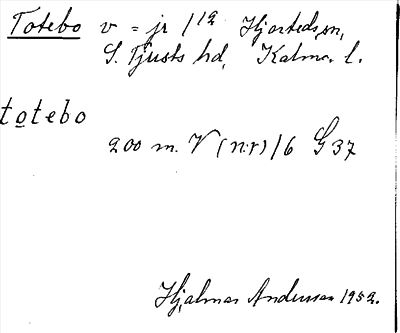 Totebo v = jr 1/12 Hjorteds sn,
S. Tjusts hd, Kalmar l.
totebo
200 m. V (n:r) 16 G 37
Hjalmar Andersson 1952.